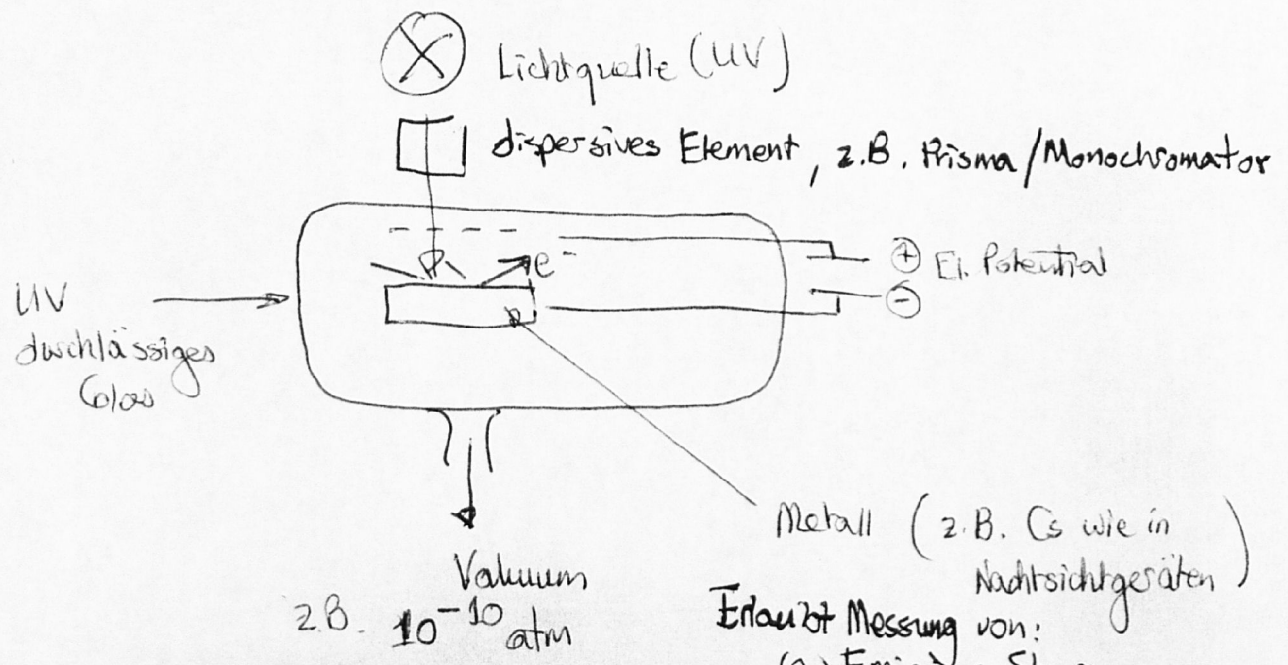 Lichtquelle (UV)
dispersives Element, z.B. Prisma/Monochromator
e-
+
El. Potential
-
UV
durchlässiges
Glas
Metall (z.B. Cs wie in
Nachtsichtgeräten)
Vakuum
z.B. 10^-10 atm
Erlaubt Messung von: